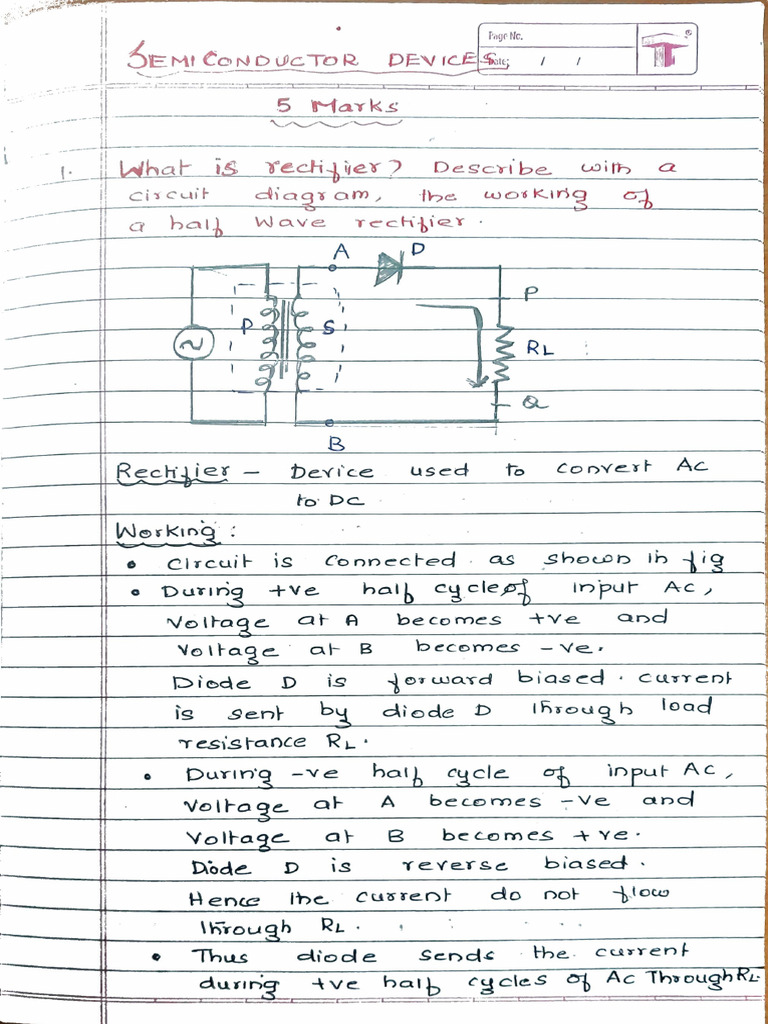 Page No.
Date: / /
SEMICONDUCTOR DEVICES
5 Marks
1. What is rectifier? Describe with a
circuit diagram, the working of
a half Wave rectifier.
A D
P
P S
RL
Q
B
Rectifier - Device used to convert Ac
to DC
Working :
• Circuit is connected as shown in fig
• During +ve half cycle of input Ac,
Voltage at A becomes +ve and
Voltage at B becomes -ve.
Diode D is forward biased. current
is sent by diode D through load
resistance RL.
• During -ve half cycle of input Ac,
Voltage at A becomes -ve and
Voltage at B becomes +ve.
Diode D is reverse biased.
Hence the current do not flow
through RL.
• Thus diode sends the current
during +ve half cycles of Ac Through RL.